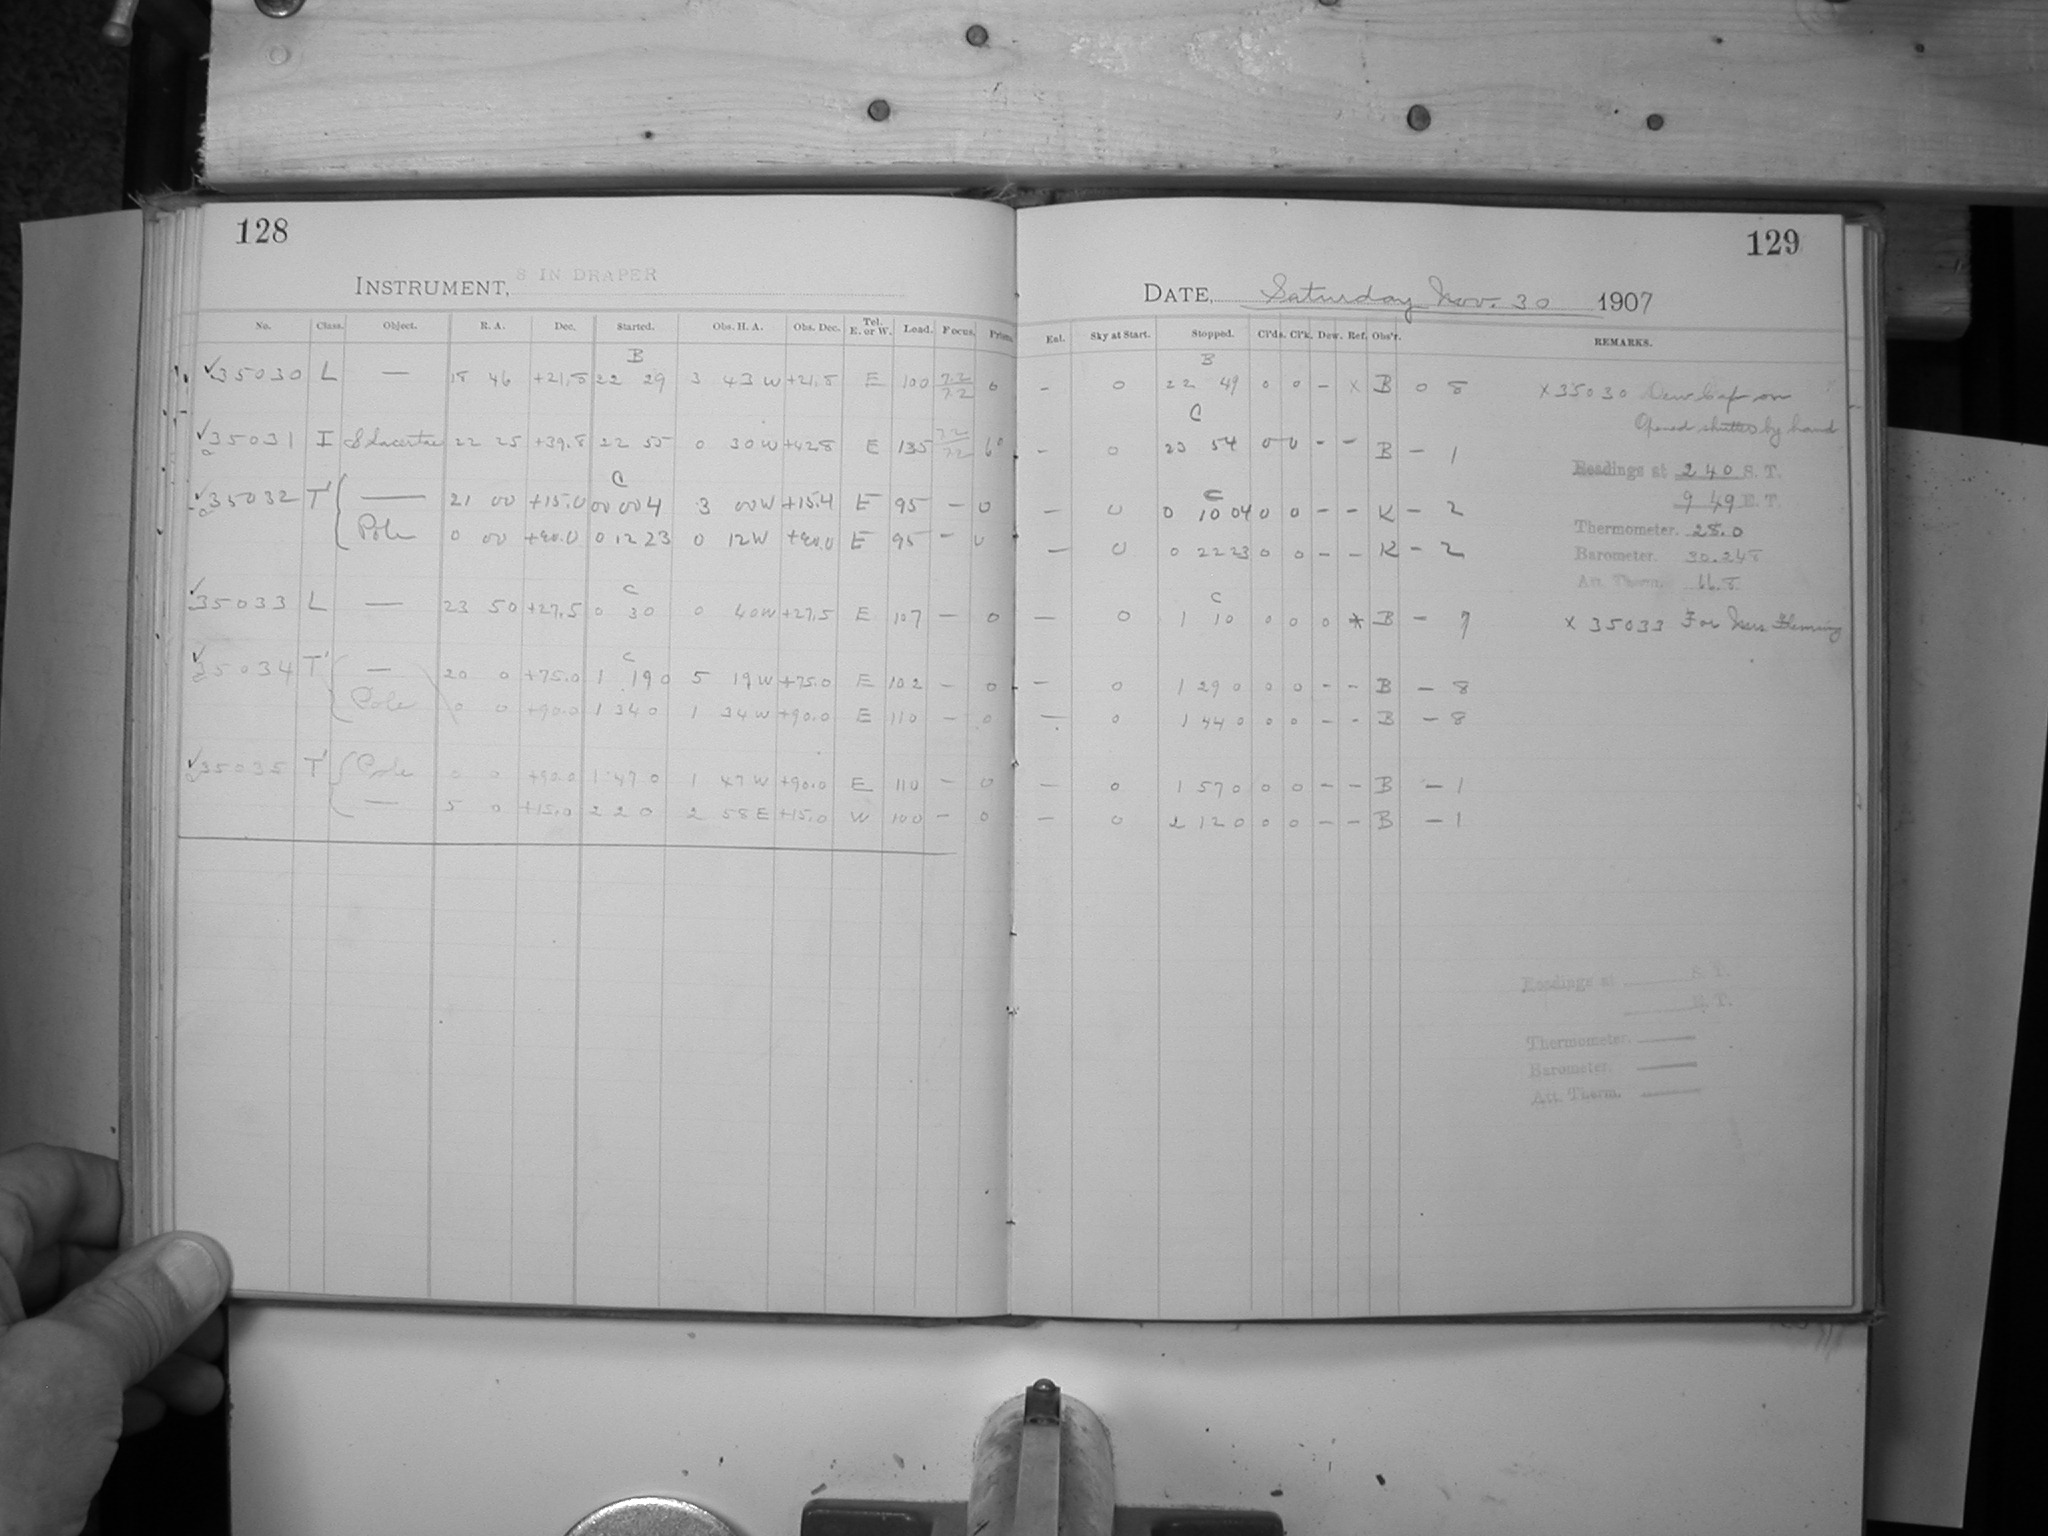 128
129
INSTRUMENT, 8 IN DRAPER
DATE, Saturday Nov. 30 1907
No. Class. Object. R. A. Dec. Started. Obs. H. A. Obs. Dec. Tel. E. or W. Load. Focus. Prism. Enl. Sky at Start. Stopped. Cl'ds. Cl'k. Dew. Ref. Obs'r. REMARKS.
B B
35030 L — 18 46 +21.8 22 29 3 43 W +21.8 E 100 7.2 7.2 0 - 0 22 49 0 0 - x B 0 8 x 35030 Dew Cap on
C Opened shutter by hand
35031 I S Lacertae 22 25 +39.8 22 55 0 30 W +42.8 E 135 7.2 7.2 - 0 23 54 0 0 - - B - 1
Readings at 2 40 S. T.
C C
35032 T' — 21 00 +15.0 00 004 3 00 W +15.4 E 95 - 0 - 0 0 10 04 0 0 - - K - 2
9 49 E. T.
Pole 0 00 +90.0 0 12 23 0 12 W +90.0 E 95 - 0 - 0 0 22 23 0 0 - - K - 2
Thermometer. 28.0
Barometer. 30.248
Att. Therm. 66.8
C C
35033 L — 23 50 +27.5 0 30 0 40 W +27.5 E 107 - 0 - 0 1 10 0 0 0 * B - 7 x 35033 For Mrs. Fleming
C
35034 T' — 20 0 +75.0 1 19 0 5 19 W +75.0 E 102 - 0 - 0 1 29 0 0 0 - - B - 8
Pole 0 0 +90.0 1 34 0 1 34 W +90.0 E 110 - 0 - 0 1 44 0 0 0 - - B - 8
35035 T' Pole 0 0 +90.0 1 47 0 1 47 W +90.0 E 110 - 0 - 0 1 57 0 0 0 - - B - 1
— 5 0 +15.0 2 2 0 2 58 E +15.0 W 100 - 0 - 0 2 12 0 0 0 - - B - 1
Readings at S. T.
E. T.
Thermometer.
Barometer.
Att. Therm.